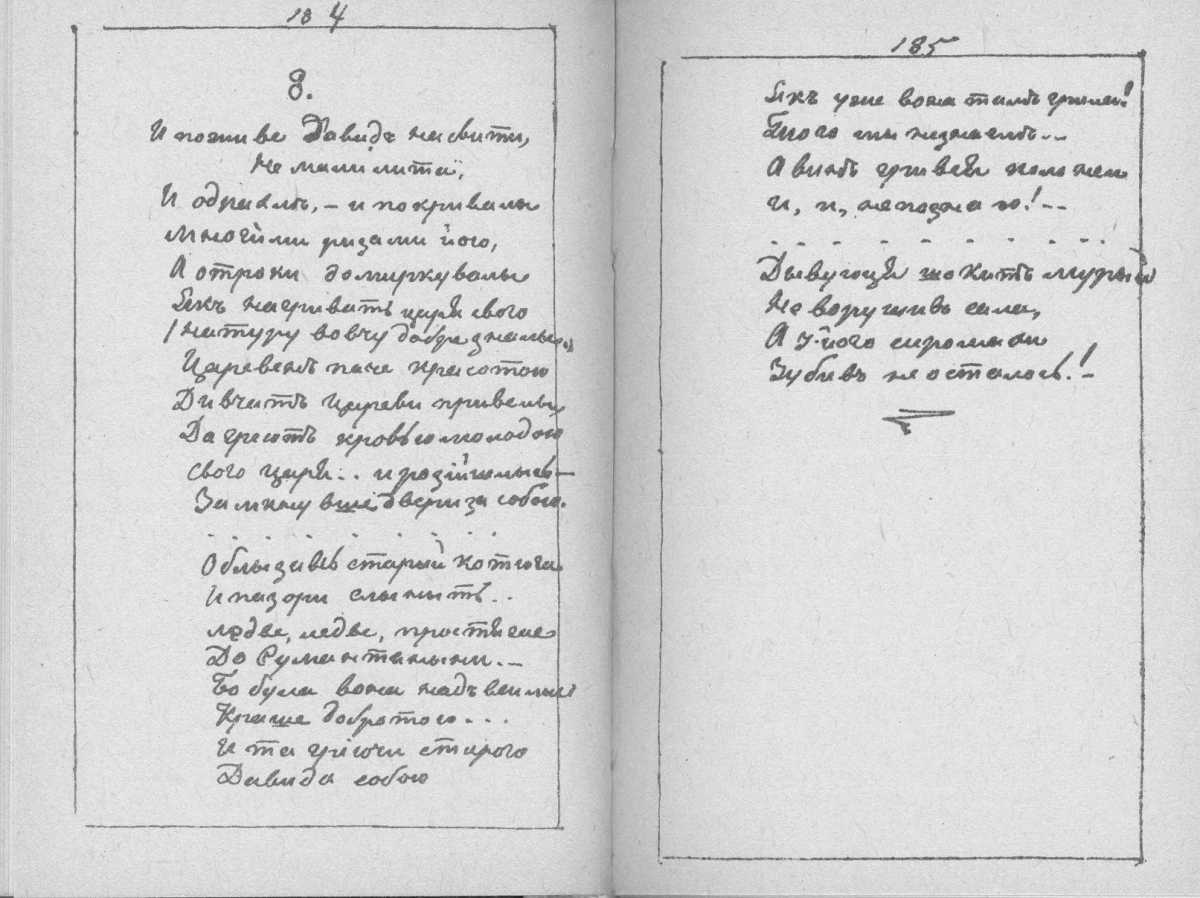 184
8.
И поживе Давидъ на свити,
Не мали лита,
И одряхлъ, – и покривалы
Многими ризами його,
А отроки домиркувалы
Якъ нагривать царя свого
/натуру вовчу добре зналы/
Царевенъ паче красотою
Дивчатъ цареви привелы,
Да гріютъ кровью молодою
свого царя.. и розійшлысь –
Замкнувше двери за собою.
. . . . . . .
Облызавсь старый котюга
И пазори слынить..
Ледве, ледве, простягае
До Румантяныни. –
Бо була вона надъ всимы
Краще добротою...
И та гріючи старого
Давида собою
185
Якъ уже вона тамъ гріла!
Того мы не знаемъ..
А винъ гривсь неложенъ
И, и, не позна ю!..
. . . . . . . . .
Дывуюця що китъ мурый
Не ворушивъ сала,
А у його сиромахи
Зубивъ не осталось! –